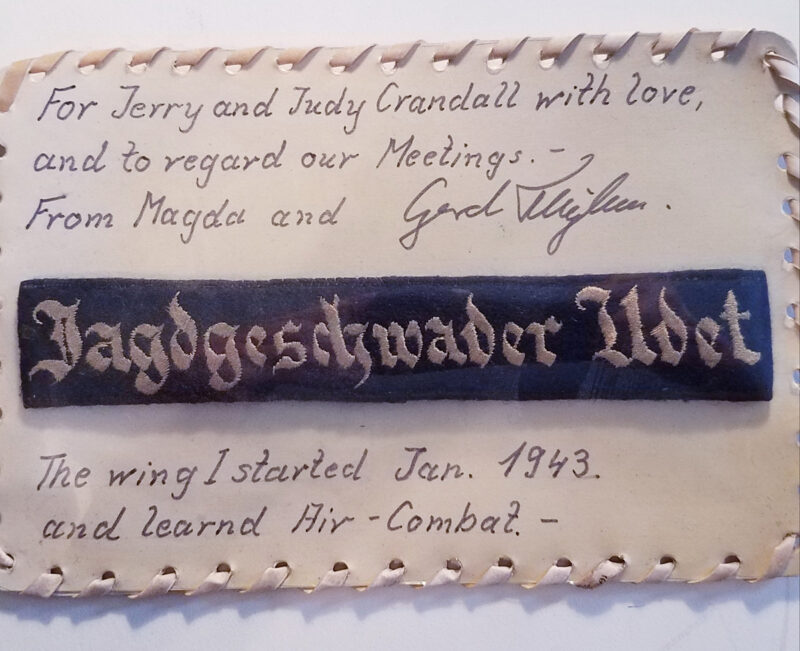 For Jerry and Judy Crandall with love,
and to regard our Meetings.-
From Magda and Gerd
Jagdgeschwader Udet
The wing I started Jan. 1943.
and learnd Air-Combat.-